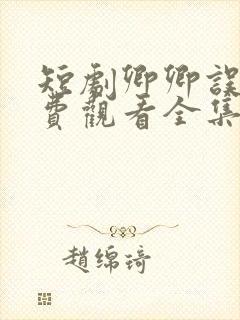 短劇卿卿誤
費觀看全集
趙綿琦